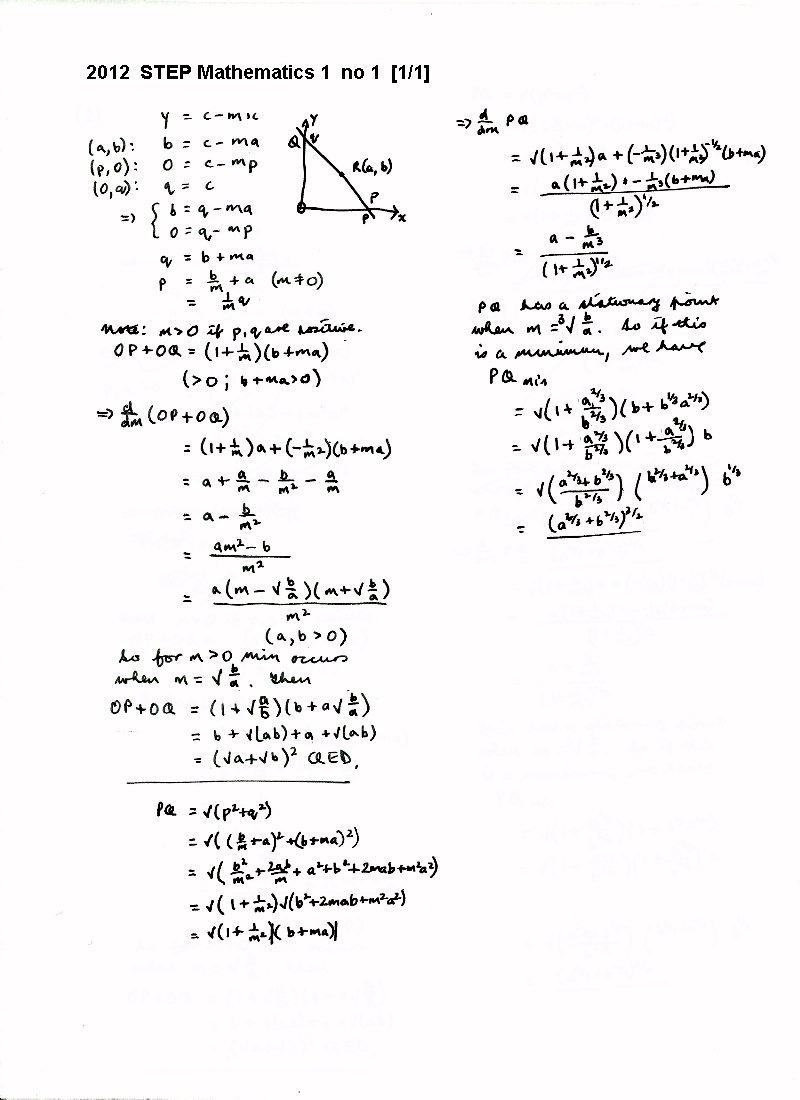 2012 STEP Mathematics 1 no 1 [1/1]
y = c - mx
(a, b): b = c - ma
(p, 0): 0 = c - mp
(0, q): q = c
⇒ { b = q - ma
0 = q - mp
q = b + ma
p = b/m + a (m ≠ 0)
= 1/m q
y
Q q
R(a, b)
P
O p x
Note: m > 0 if p, q are positive.
OP + OQ = (1 + 1/m)(b + ma)
(> 0 ; b + ma > 0)
⇒ d/dm (OP + OQ)
= (1 + 1/m)a + (-1/m²)(b + ma)
= a + a/m - b/m² - a/m
= a - b/m²
= (am² - b)/m²
= a(m - √(b/a))(m + √(b/a))/m²
(a, b > 0)
So for m > 0 min occurs
when m = √(b/a). Then
OP + OQ = (1 + √(a/b))(b + a√(b/a))
= b + √(ab) + a + √(ab)
= (√a + √b)² QED.
PQ = √(p² + q²)
= √((b/m + a)² + (b + ma)²)
= √(b²/m² + 2ab/m + a² + b² + 2mab + m²a²)
= √(1 + 1/m²)√(b² + 2mab + m²a²)
= √(1 + 1/m²)|(b + ma)|
⇒ d/dm PQ
= √(1 + 1/m²)a + (-1/m³)(1 + 1/m²)^(-1/2)(b + ma)
= (a(1 + 1/m²) + -1/m³(b + ma))/(1 + 1/m²)^(1/2)
= (a - b/m³)/(1 + 1/m²)^(1/2)
PQ has a stationary point
when m = ³√(b/a). So if this
is a minimum, we have
PQ min
= √(1 + a^(2/3)/b^(2/3))(b + b^(1/3)a^(2/3))
= √(1 + a^(2/3)/b^(2/3))(1 + a^(2/3)/b^(2/3)) b
= √((a^(2/3) + b^(2/3))/b^(2/3)) (b^(2/3) + a^(2/3)) b^(1/3)
= (a^(2/3) + b^(2/3))^(3/2)